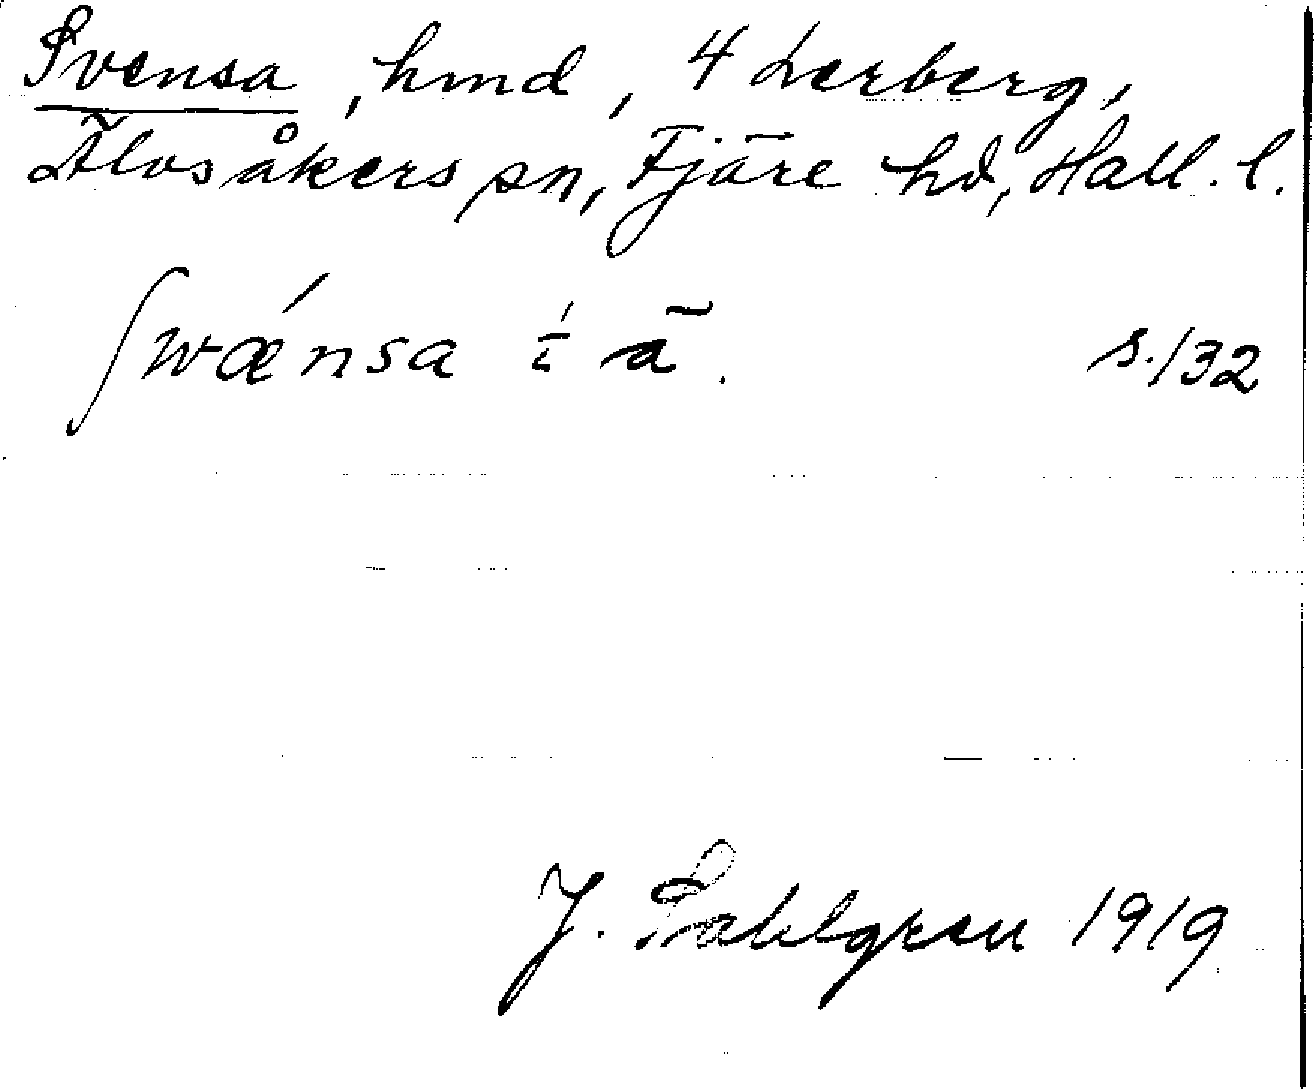 Svensa, hmd, 4 Lerberg,
Älvsåkers sn, Fjäre hd, Hall. l.
Swǽnsa i ā. s. 132
J. Sahlgren 1919